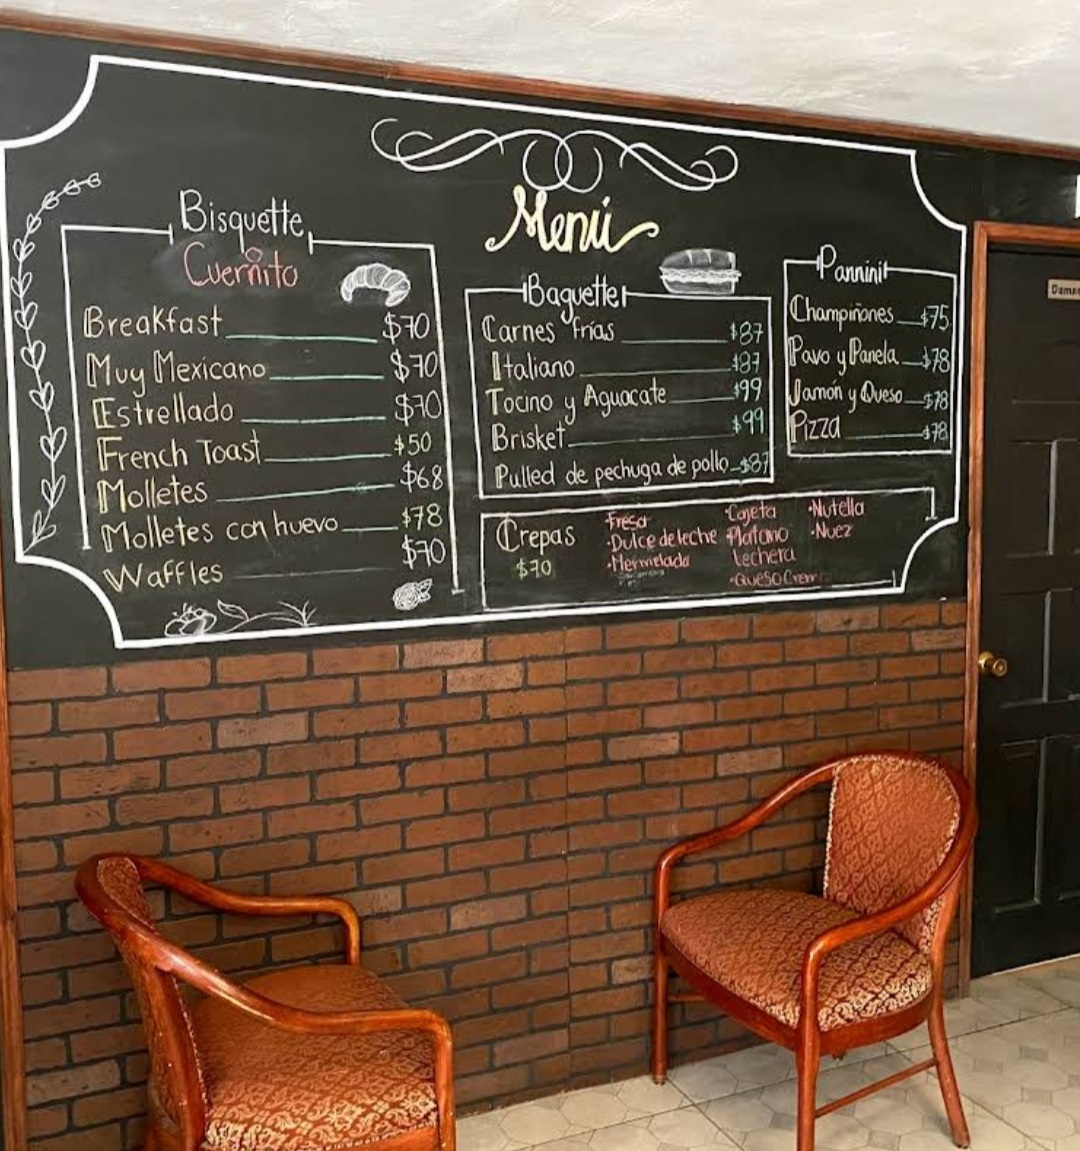 Menú
Bisquette
Cuernito
Breakfast $70
Muy Mexicano $70
Estrellado $70
French Toast $50
Molletes $68
Molletes con huevo $78
Waffles $70
Baguette
Carnes frías $87
Italiano $87
Tocino y Aguacate $99
Brisket $99
Pulled de pechuga de pollo $87
Pannini
Champiñones $75
Pavo y Panela $78
Jamón y Queso $78
Pizza $78
Crepas
$70
·Fresa
·Dulce de leche
·Mermelada
·Cajeta
·Platano
Lechera
·Queso Crem
·Nutella
·Nuez
Damas